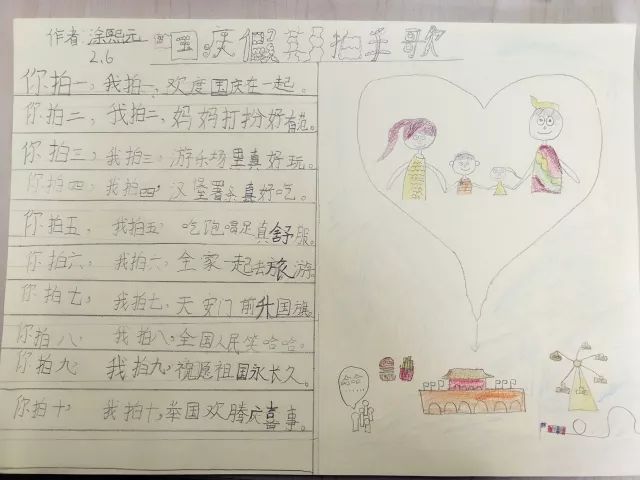 作者:涂熙元 国庆假期拍手歌
2.6
你拍一,我拍一,欢度国庆在一起。
你拍二,我拍二,妈妈打扮好有范。
你拍三,我拍三,游乐场里真好玩。
你拍四,我拍四,汉堡薯条真好吃。
你拍五,我拍五,吃饱喝足真舒服。
你拍六,我拍六,全家一起去旅游。
你拍七,我拍七,天安门前升国旗。
你拍八,我拍八,全国人民笑哈哈。
你拍九,我拍九,祝愿祖国永长久。
你拍十,我拍十,举国欢腾庆喜事。